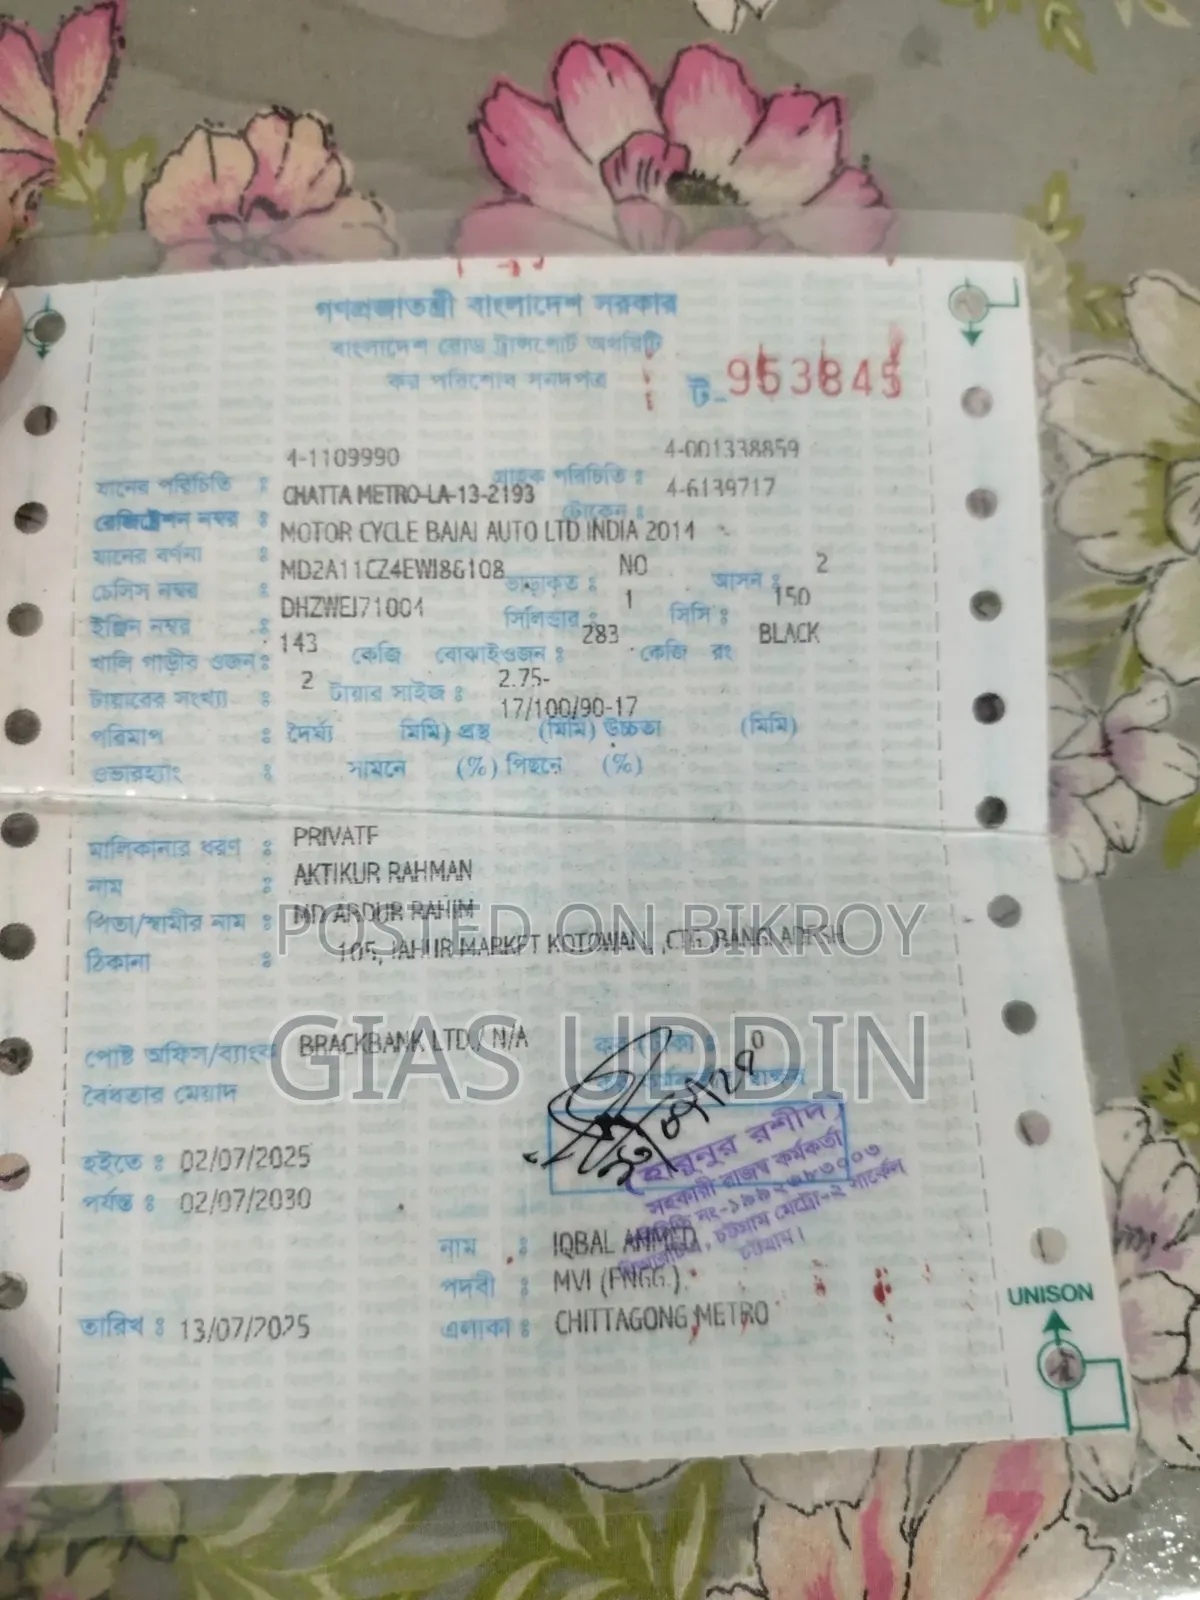 গণপ্রজাতন্ত্রী বাংলাদেশ সরকার
বাংলাদেশ রোড ট্রান্সপোর্ট অথরিটি
কর পরিশোধ সনদপত্র
ট- 953845
4-1109990 4-001338859
যানের পরিচিতি : গ্রাহক পরিচিতি :
CHATTA METRO-LA-13-2193 4-6139717
রেজিষ্ট্রেশন নম্বর : টোকেন :
MOTOR CYCLE BAJAJ AUTO LTD.INDIA 2014
যানের বর্ণনা :
MD2A11CZ4EWJ86108 NO 2
চেসিস নম্বর : ভাড়াকৃত : আসন :
DHZWEJ71004 1 150
ইঞ্জিন নম্বর : সিলিন্ডার : সিসি :
143 283 BLACK
খালি গাড়ীর ওজন : কেজি বোঝাইওজন : কেজি রং
2 2.75-
টায়ারের সংখ্যা : টায়ার সাইজ :
17/100/90-17
পরিমাপ : দৈর্ঘ্য মিমি) প্রস্থ (মিমি) উচ্চতা (মিমি)
ওভারহ্যাং : সামনে (%) পিছনে (%)
মালিকানার ধরণ : PRIVATE
নাম : AKTIKUR RAHMAN
পিতা/স্বামীর নাম : MD ABDUR RAHIM
ঠিকানা : 105, JAHUR MARKET KOTOWALI ,CTG.,BANGLADESH
POSTED ON BIKROY
GIAS UDDIN
পোষ্ট অফিস/ব্যাংক BRACKBANK LTD./ N/A কর (টাকা : 0
বৈধতার মেয়াদ
হইতে : 02/07/2025
পর্যন্ত : 02/07/2030
হারুনুর রশীদ
সহকারী রাজস্ব কর্মকর্তা
চট্টগ্রাম মেট্রো-২ সার্কেল
চট্টগ্রাম।
নাম : IQBAL AHMED
পদবী : MVI (ENGG.)
তারিখ : 13/07/2025 এলাকা : CHITTAGONG METRO
UNISON